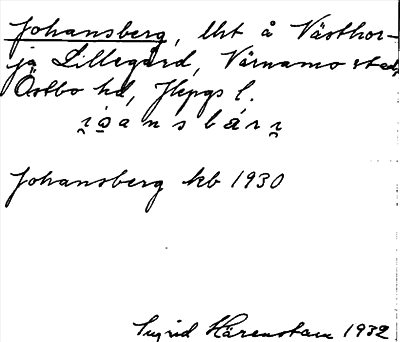 Johansberg, Uht å Västhor-
ja Lillegård, Värnamo stad,
Östbo hd, Jkpgs l.
Johansberg kb 1930
Ingrid Härenstam 1932